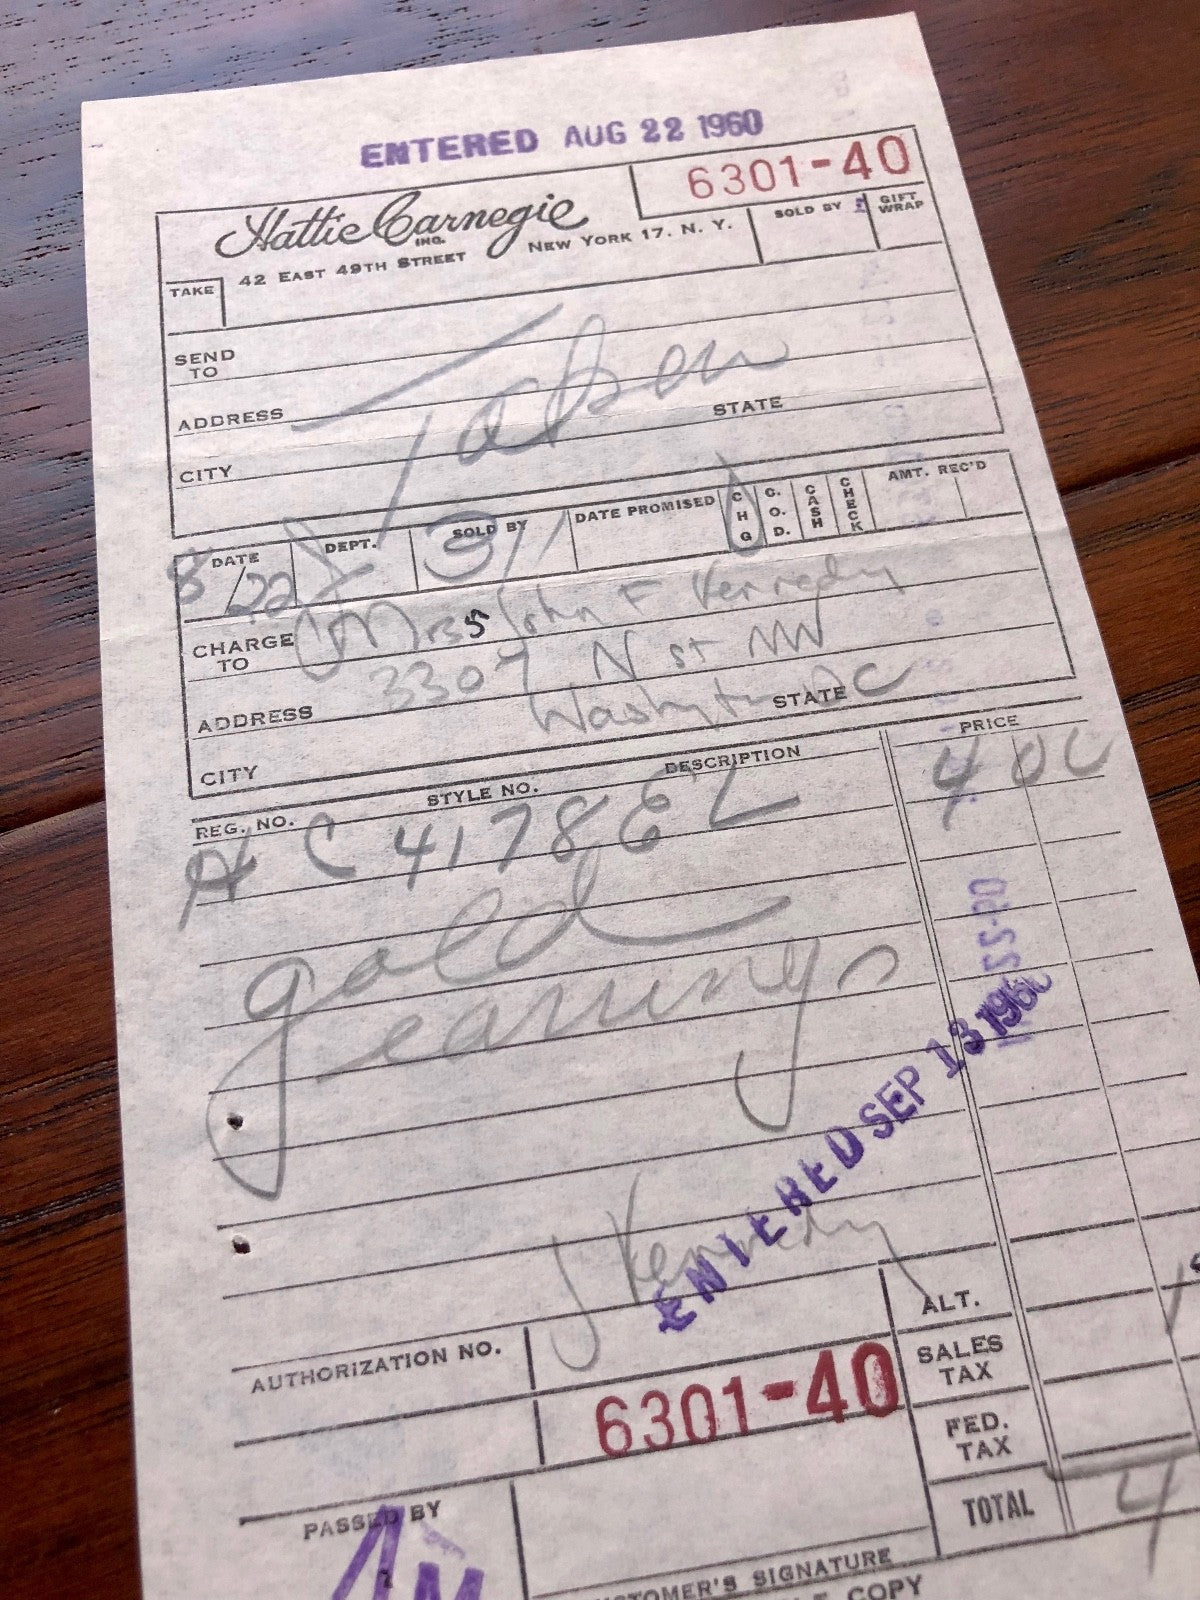 ENTERED AUG 22 1960
6301-40
Hattie Carnegie
INC.
42 EAST 49TH STREET NEW YORK 17, N. Y.
SOLD BY
GIFT WRAP
TAKE
SEND TO
Taken
ADDRESS
STATE
CITY
DATE
DEPT.
SOLD BY
DATE PROMISED
CHG
C.O.D.
CASH
CHECK
AMT. REC'D
8/22
311
CHARGE TO Mrs John F Kennedy
ADDRESS 3307 N St NW
Washington DC
STATE
CITY
REG. NO.
STYLE NO.
DESCRIPTION
PRICE
C 4178 E L
4 00
gold
earrings
ENTERED SEP 13 1960
J Kennedy
AUTHORIZATION NO.
6301-40
ALT.
SALES TAX
FED. TAX
TOTAL 4
PASSED BY
CUSTOMER'S SIGNATURE
COPY